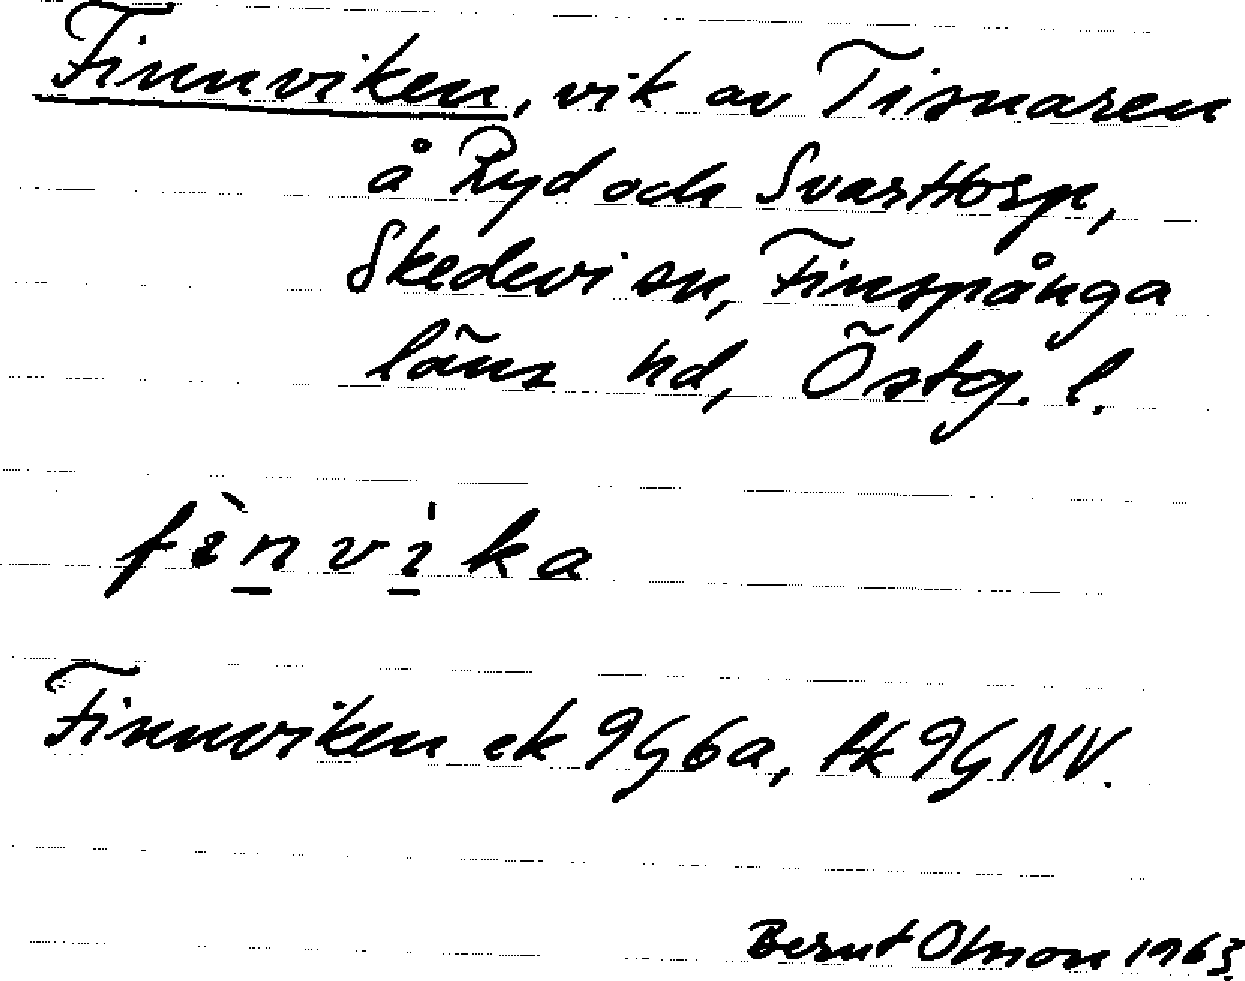 Finnviken, vik av Tisnaren
å Ryd och Svarttorp,
Skedevi sn, Finspånga
läns hd, Östg. l.
fìnvika
Finnviken ek 9G6a, tk 9G NV.
Bernt Olsson 1963